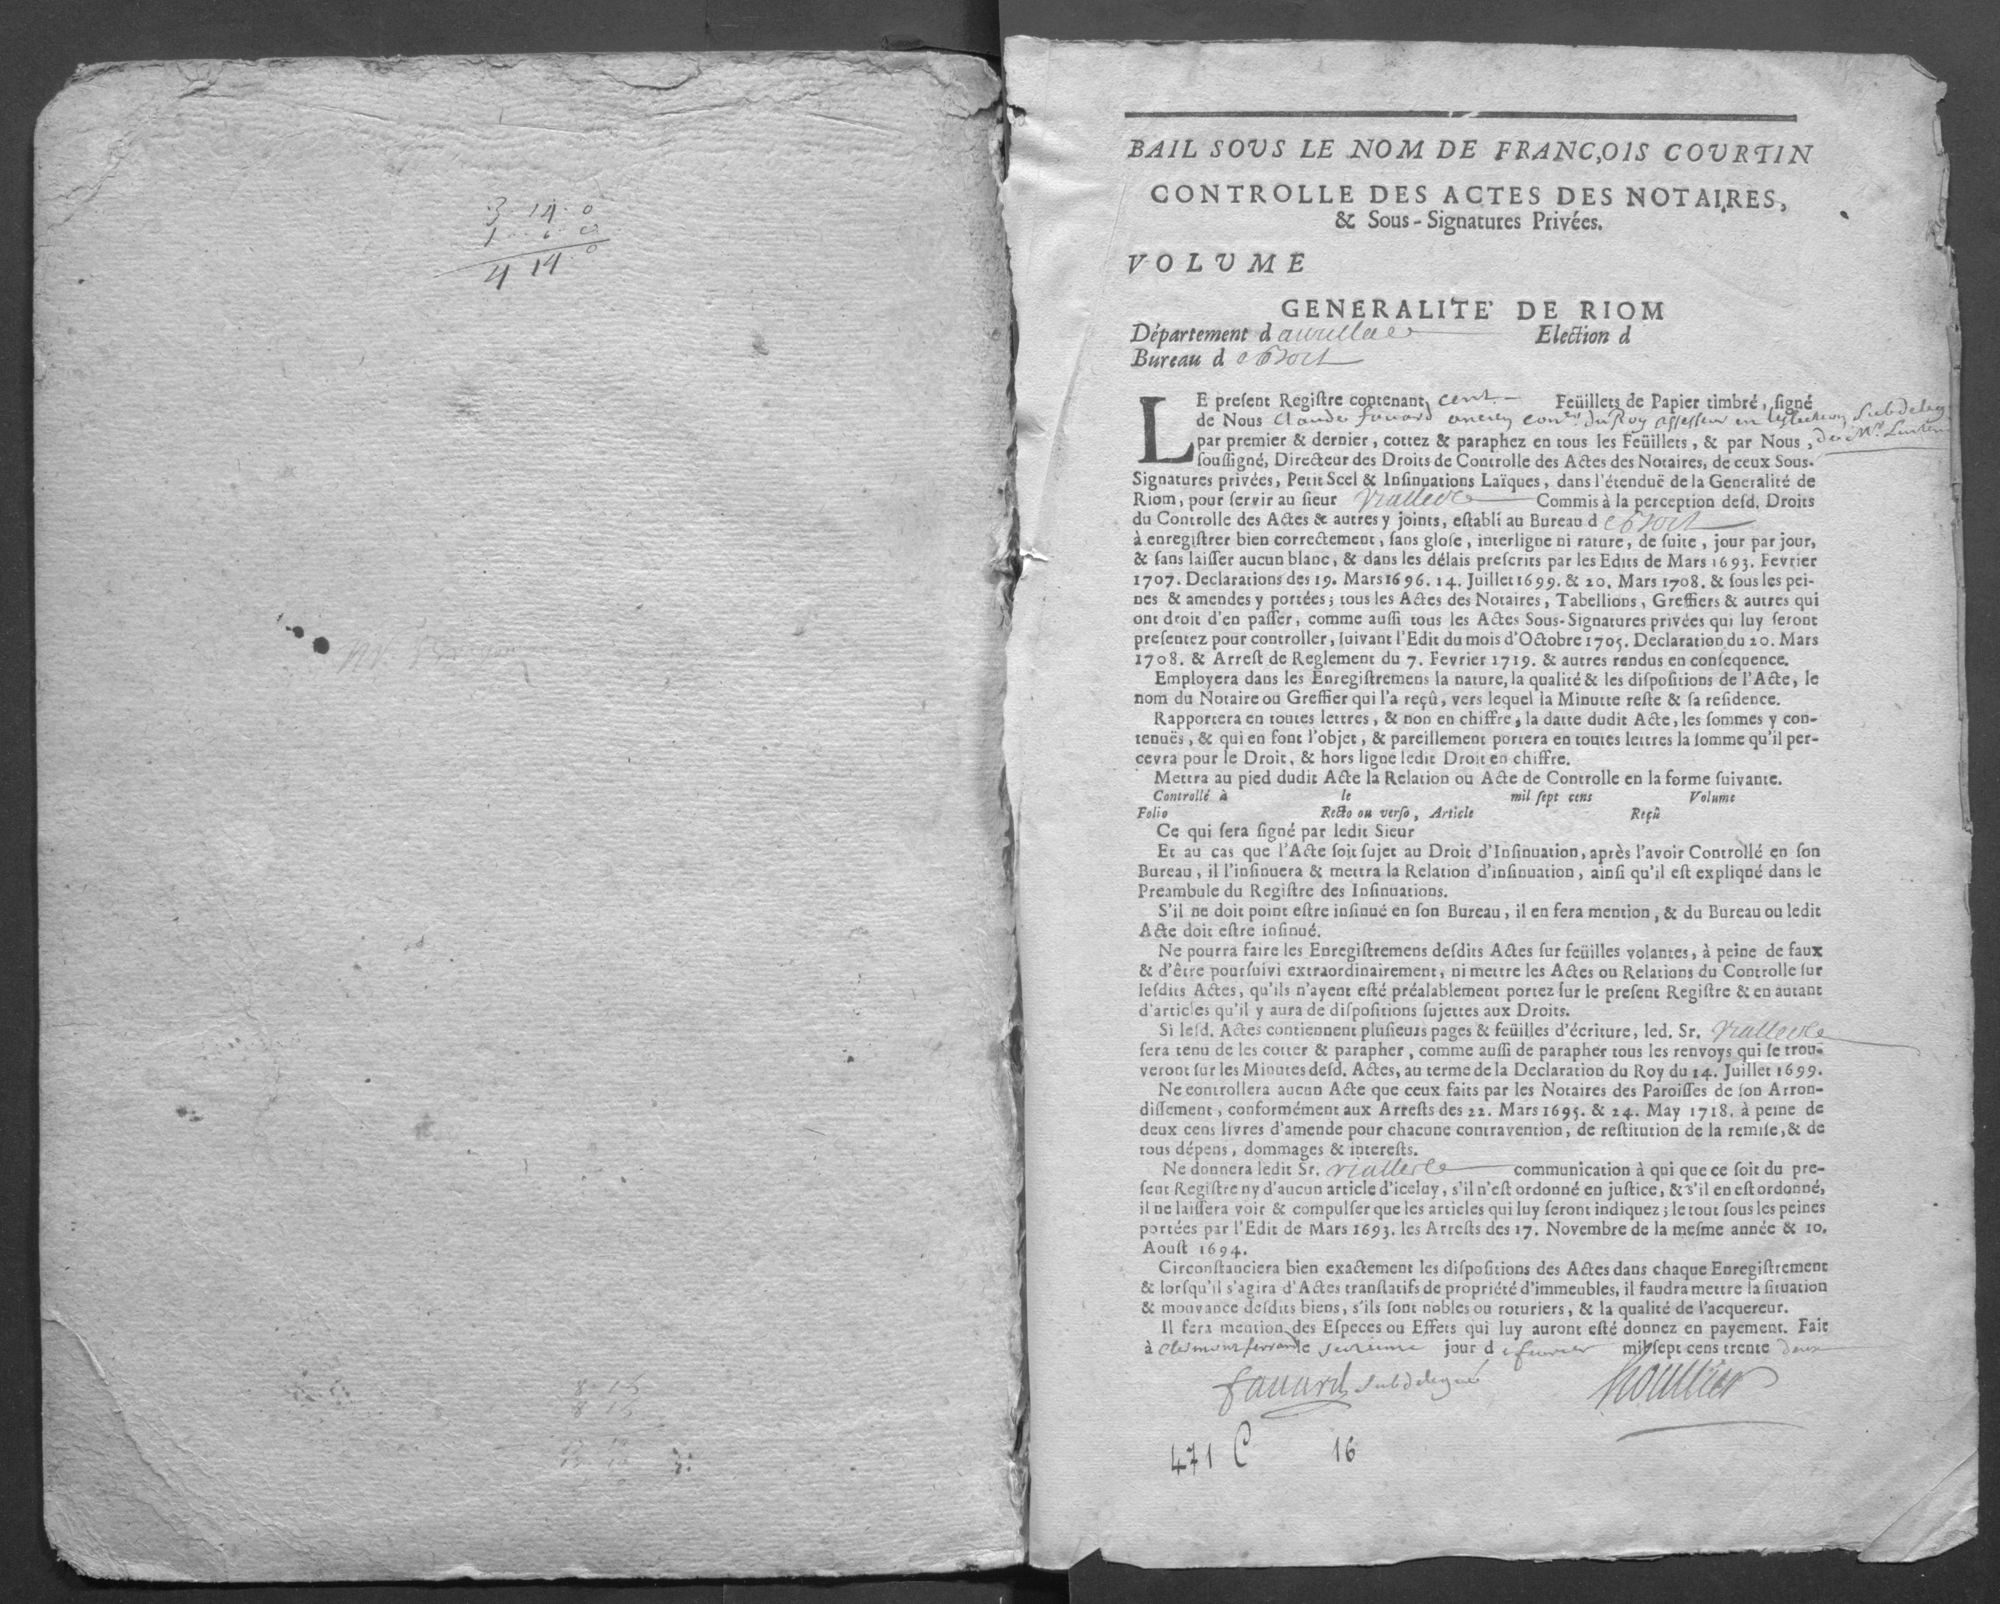 3 14 0
4 14 0
BAIL SOUS LE NOM DE FRANC,OIS COURTIN
CONTROLLE DES ACTES DES NOTAIRES,
& Sous-Signatures Privées.
VOLUME
GENERALITE' DE RIOM
Département d aurillac Election d
Bureau d
LE preſent Regiſtre contenant cent Feüillets de Papier timbré, ſigné
de Nous Claude favard ancien conr. du Roy assesseur en Subdeleg
par premier & dernier, cottez & paraphez en tous les Feüillets, & par Nous, de Mr.
ſouſſigné, Directeur des Droits de Controlle des Actes des Notaires, de ceux Sous-
Signatures privées, Petit Scel & Inſinuations Laïques, dans l'étenduë de la Generalité de
Riom, pour ſervir au ſieur Commis à la perception deſd. Droits
du Controlle des Actes & autres y joints, eſtabli au Bureau d
à enregiſtrer bien correctement, ſans gloſe, interligne ni rature, de ſuite, jour par jour,
& ſans laiſſer aucun blanc, & dans les délais preſcrits par les Edits de Mars 1693. Fevrier
1707. Declarations des 19. Mars 1696. 14. Juillet 1699. & 20. Mars 1708. & ſous les pei-
nes & amendes y portées; tous les Actes des Notaires, Tabellions, Greffiers & autres qui
ont droit d'en paſſer, comme auſſi tous les Actes Sous-Signatures privées qui luy ſeront
preſentez pour controller, ſuivant l'Edit du mois d'Octobre 1705. Declaration du 20. Mars
1708. & Arreſt de Reglement du 7. Fevrier 1719. & autres rendus en conſequence.
Employera dans les Enregiſtremens la nature, la qualité & les diſpoſitions de l'Acte, le
nom du Notaire ou Greffier qui l'a reçû, vers lequel la Minutte reſte & ſa reſidence.
Rapportera en toutes lettres, & non en chiffre, la datte dudit Acte, les ſommes y con-
tenuës, & qui en font l'objet, & pareillement portera en toutes lettres la ſomme qu'il per-
cevra pour le Droit, & hors ligne ledit Droit en chiffre.
Mettra au pied dudit Acte la Relation ou Acte de Controlle en la forme ſuivante.
Controllé à le mil ſept cens Volume
Folio Recto ou verſo, Article Reçû
Ce qui ſera ſigné par ledit Sieur
Et au cas que l'Acte ſoit ſujet au Droit d'Inſinuation, après l'avoir Controllé en ſon
Bureau, il l'inſinuera & mettra la Relation d'inſinuation, ainſi qu'il eſt expliqué dans le
Preambule du Regiſtre des Inſinuations.
S'il ne doit point eſtre inſinué en ſon Bureau, il en fera mention, & du Bureau ou ledit
Acte doit eſtre inſinué.
Ne pourra faire les Enregiſtremens deſdits Actes ſur feüilles volantes, à peine de faux
& d'être pourſuivi extraordinairement, ni mettre les Actes ou Relations du Controlle ſur
leſdits Actes, qu'ils n'ayent eſté préalablement portez ſur le preſent Regiſtre & en autant
d'articles qu'il y aura de diſpoſitions ſujettes aux Droits.
Si leſd. Actes contiennent pluſieurs pages & feüilles d'écriture, led. Sr.
ſera tenu de les cotter & parapher, comme auſſi de parapher tous les renvoys qui ſe trou-
veront ſur les Minutes deſd. Actes, au terme de la Declaration du Roy du 14. Juillet 1699.
Ne controllera aucun Acte que ceux faits par les Notaires des Paroiſſes de ſon Arron-
diſſement, conformément aux Arreſts des 22. Mars 1695. & 24. May 1718. à peine de
deux cens livres d'amende pour chacune contravention, de reſtitution de la remiſe, & de
tous dépens, dommages & intereſts.
Ne donnera ledit Sr. communication à qui que ce ſoit du pre-
ſent Regiſtre ny d'aucun article d'iceluy, s'il n'eſt ordonné en juſtice, & s'il en eſt ordonné,
il ne laiſſera voir & compulſer que les articles qui luy ſeront indiquez; le tout ſous les peines
portées par l'Edit de Mars 1693. les Arreſts des 17. Novembre de la meſme année & 10.
Aouſt 1694.
Circonſtanciera bien exactement les diſpoſitions des Actes dans chaque Enregiſtrement
& lorſqu'il s'agira d'Actes tranſlatifs de propriété d'immeubles, il faudra mettre la ſituation
& mouvance deſdits biens, s'ils ſont nobles ou roturiers, & la qualité de l'acquereur.
Il fera mention des Eſpeces ou Effets qui luy auront eſté donnez en payement. Fait
à Clermont ferrand le jour de fevrier mil ſept cens trente deux
favard subdelegué
471 C 16